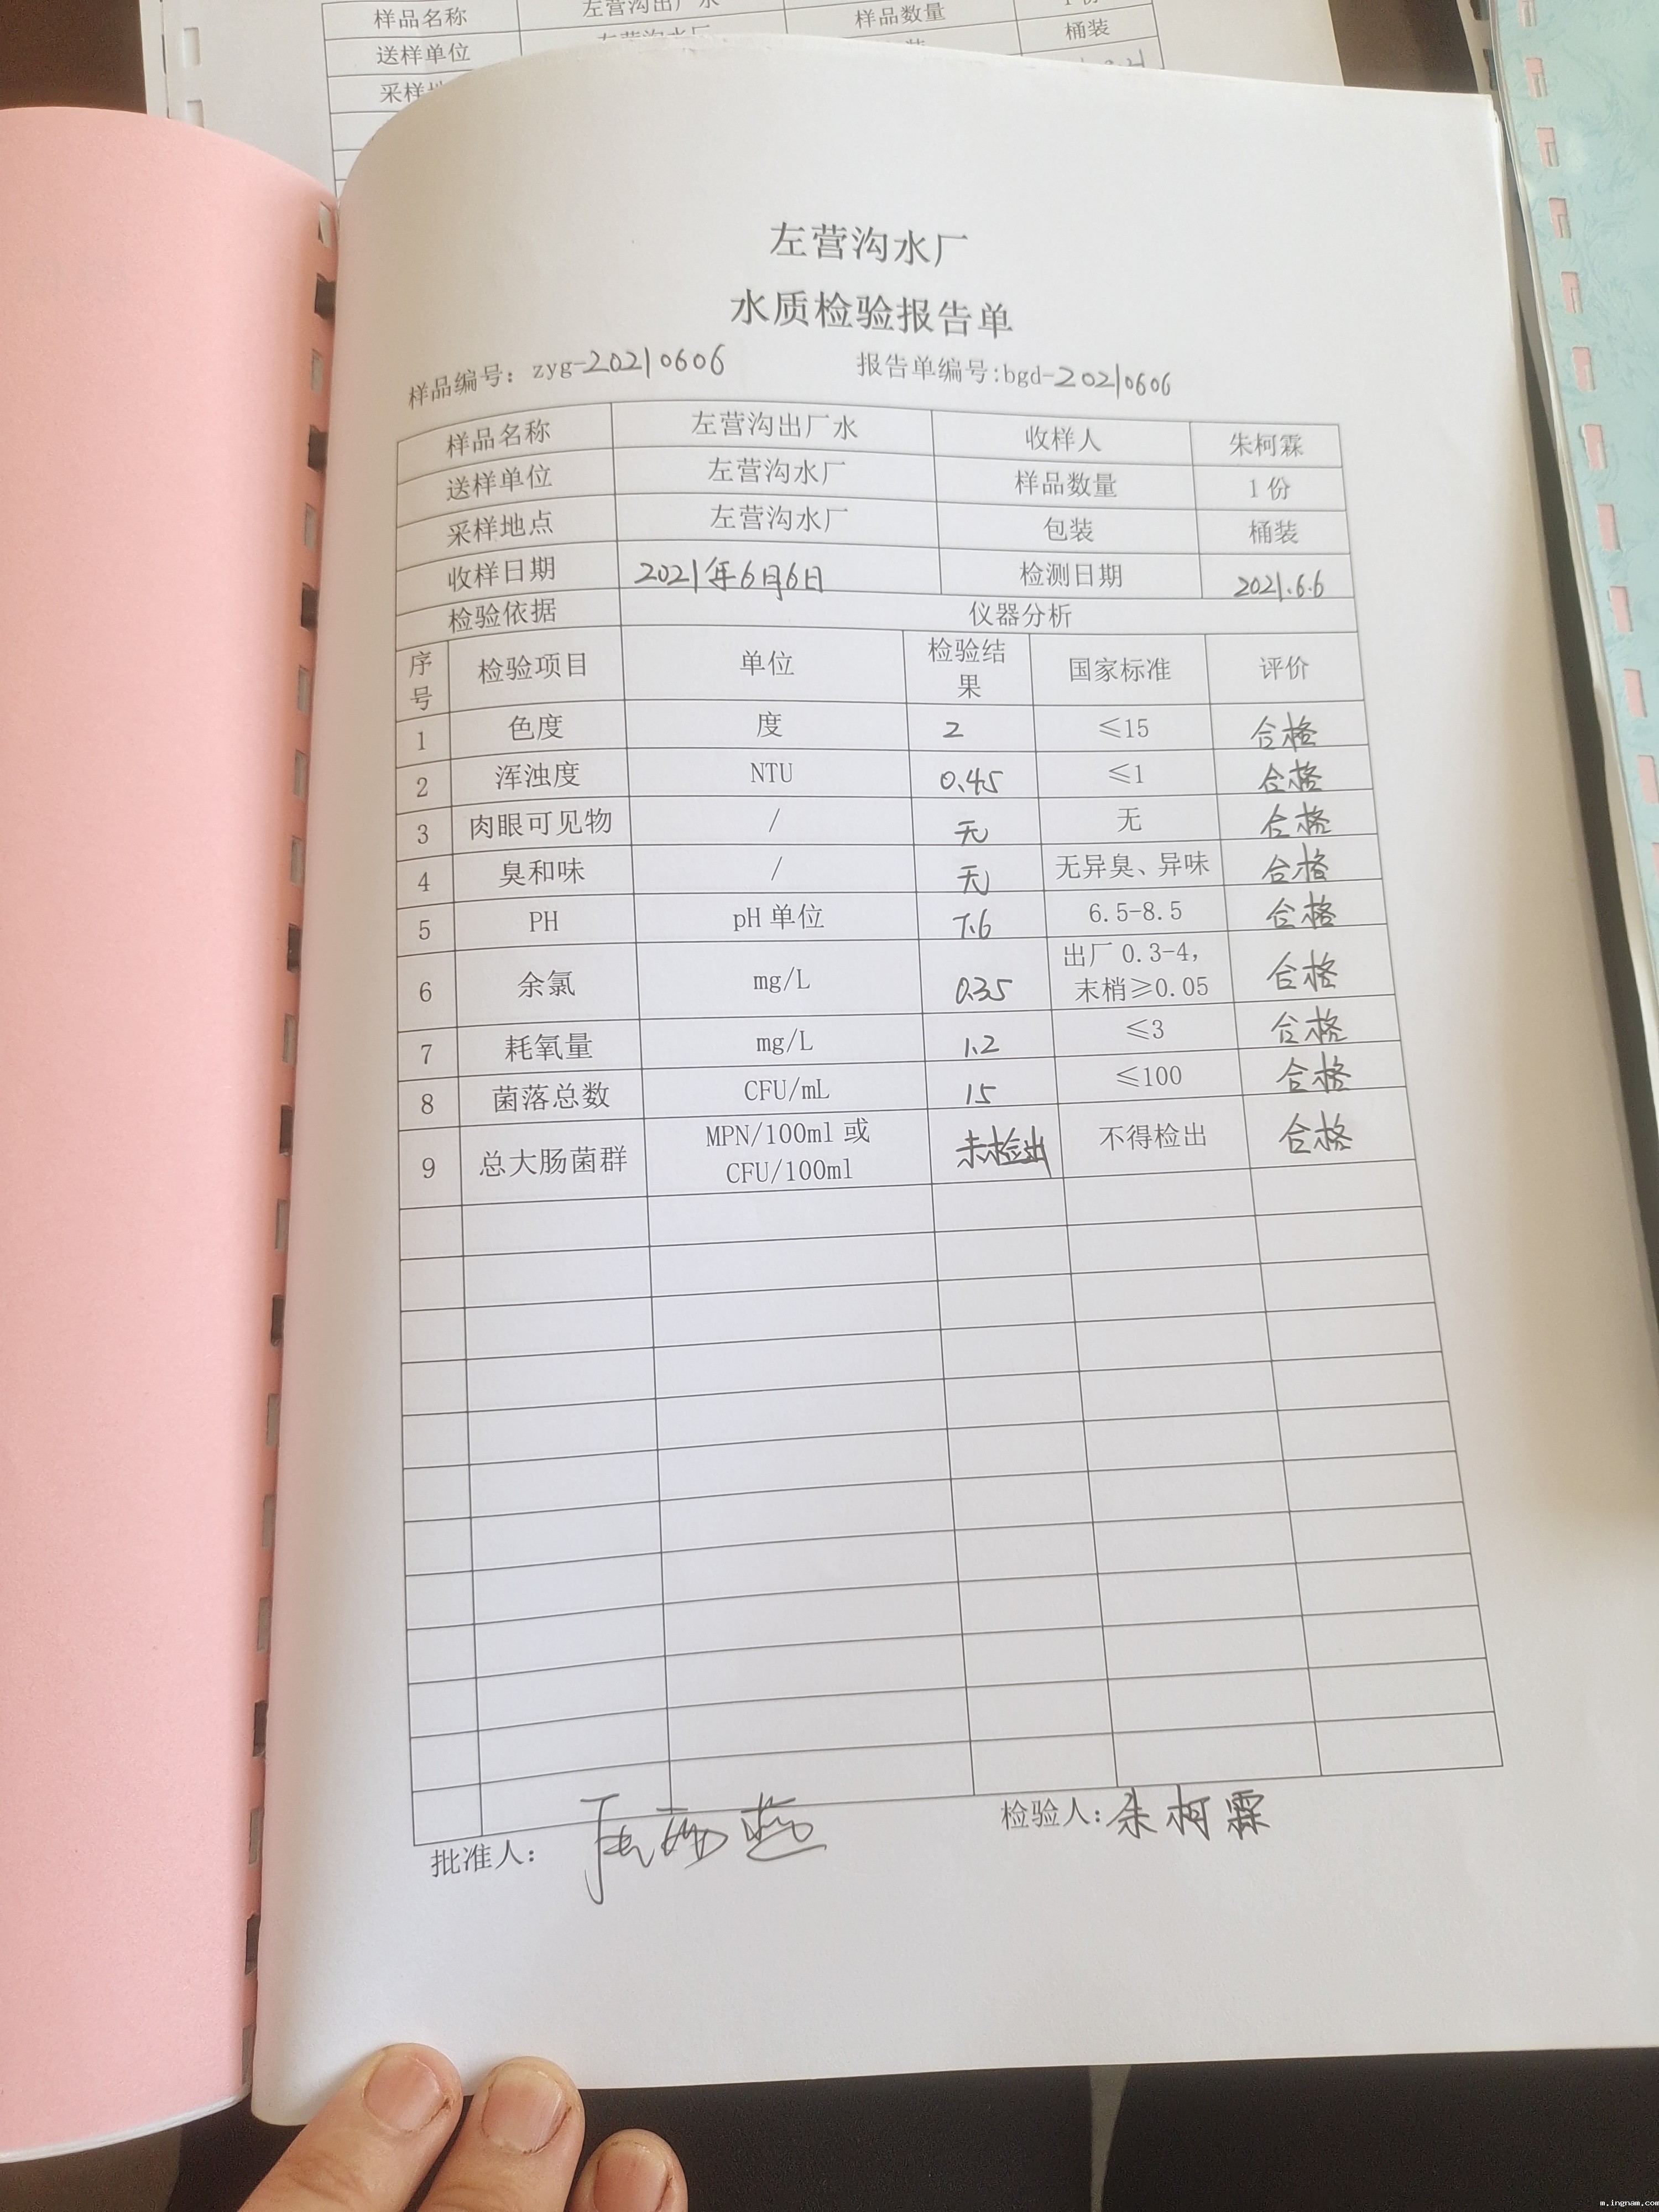 样品名称 左营沟出厂水 样品数量 1份
送样单位 左营沟水厂 桶装
左营沟水厂
水质检验报告单
样品编号：zyg-20210606 报告单编号:bgd-20210606
样品名称 左营沟出厂水 收样人 朱柯霖
送样单位 左营沟水厂 样品数量 1份
采样地点 左营沟水厂 包装 桶装
收样日期 2021年6月6日 检测日期 2021.6.6
检验依据 仪器分析
序号 检验项目 单位 检验结果 国家标准 评价
1 色度 度 2 ≤15 合格
2 浑浊度 NTU 0.45 ≤1 合格
3 肉眼可见物 / 无 无 合格
4 臭和味 / 无 无异臭、异味 合格
5 PH pH单位 7.6 6.5-8.5 合格
6 余氯 mg/L 0.35 出厂0.3-4，末梢≥0.05 合格
7 耗氧量 mg/L 1.2 ≤3 合格
8 菌落总数 CFU/mL 15 ≤100 合格
9 总大肠菌群 MPN/100ml或CFU/100ml 未检出 不得检出 合格
批准人： 检验人:朱柯霖
m.ingnam.com